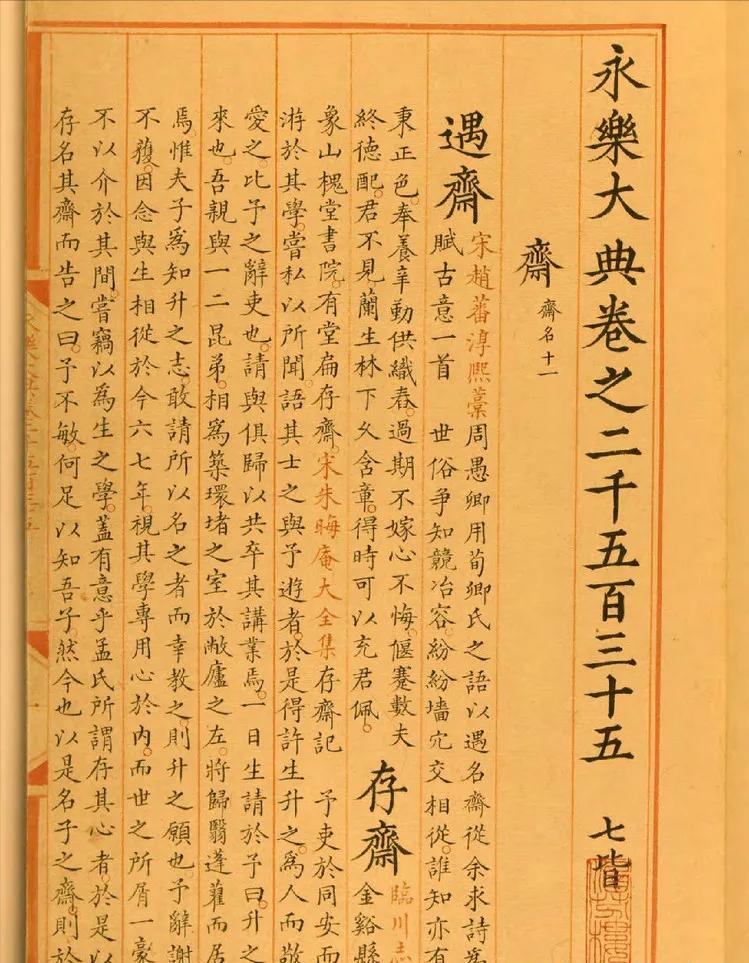 永樂大典卷之二千五百三十五 七皆
齋 齋名十一
遇齋 宋趙蕃淳熙藁周愚卿用荀卿氏之語以遇名齋從余求詩為
賦古意一首 世俗爭知競冶容紛紛墻宂交相從誰知亦有
秉正色奉養辛勤供織舂過期不嫁心不悔偃蹇數夫
終德配君不見蘭生林下久含章得時可以充君佩 存齋 臨川志
金谿縣
象山槐堂書院有堂扁存齋宋朱晦庵大全集存齋記 予吏於同安而
游於其學嘗私以所聞語其士之與予遊者於是得許生升之為人而敬
愛之比予之辭吏也請與俱歸以共卒其講業焉一日生請於予曰升之
來也吾親與一二昆弟相為築環堵之室於敝廬之左將歸翳蓬藋而居
焉惟夫子為知升之志敢請所以名之者而幸教之則升之願也予辭謝
不獲因念與生相從於今六七年視其學專用心於內而世之所屑一豪
不以介於其間嘗竊以為生之學蓋有意乎孟氏所謂存其心者於是以
存名其齋而告之曰予不敏何足以知吾子然今也以是名子之齋則於